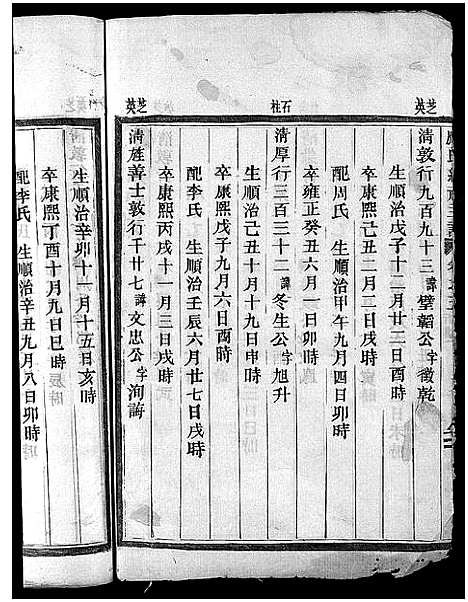 芝英
清敦行九百九十三諱壁韜公字徵乾
生順治戊子十二月廿二日酉時
卒康熙己丑二月二日戌時
配周氏 生順治甲午九月四日卯時
卒雍正癸丑六月一日卯時
石柱
清厚行三百三十二諱冬生公字旭升
生順治己丑十月十九日申時
卒康熙戊子九月六日酉時
配李氏 生順治壬辰六月廿七日戌時
卒康熙丙戌十一月三日戌時
芝英
清旌善士敦行千廿七諱文忠公字洵誨
生順治辛卯十一月十五日亥時
卒康熙丁酉十月九日巳時
配李氏 生順治辛丑九月八日卯時